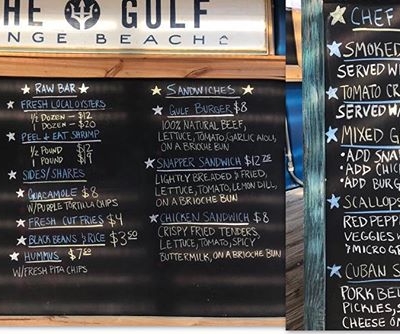 HE GULF
NGE BEACH
RAW BAR
FRESH LOCAL OYSTERS
1/2 DOZEN - $12
1 DOZEN - $20
PEEL & EAT SHRIMP
1/2 POUND $12
1 POUND $19
SIDES/SHARES
GUACAMOLE $8
W/PURPLE TORTILLA CHIPS
FRESH CUT FRIES $4
BLACK BEANS & RICE $3.50
HUMMUS $7.50
W/FRESH PITA CHIPS
SANDWICHES
GULF BURGER $8
100% NATURAL BEEF,
LETTUCE, TOMATO, GARLIC AIOLI,
ON A BRIOCHE BUN
SNAPPER SANDWICH $12
LIGHTLY BREADED & FRIED,
LETTUCE, TOMATO, LEMON DILL,
ON A BRIOCHE BUN
CHICKEN SANDWICH $8
CRISPY FRIED TENDERS,
LETTUCE, TOMATO, SPICY
BUTTERMILK, ON A BRIOCHE BUN
CHEF
SMOKED
SERVED W
TOMATO CR
SERVED W/
MIXED G
• ADD SNA
• ADD CHIC
• ADD BURG
SCALLOP
RED PEPP
VEGGIES W
& MICRO GR
CUBAN S
PORK BEL
PICKLES, S
CHEESE ON